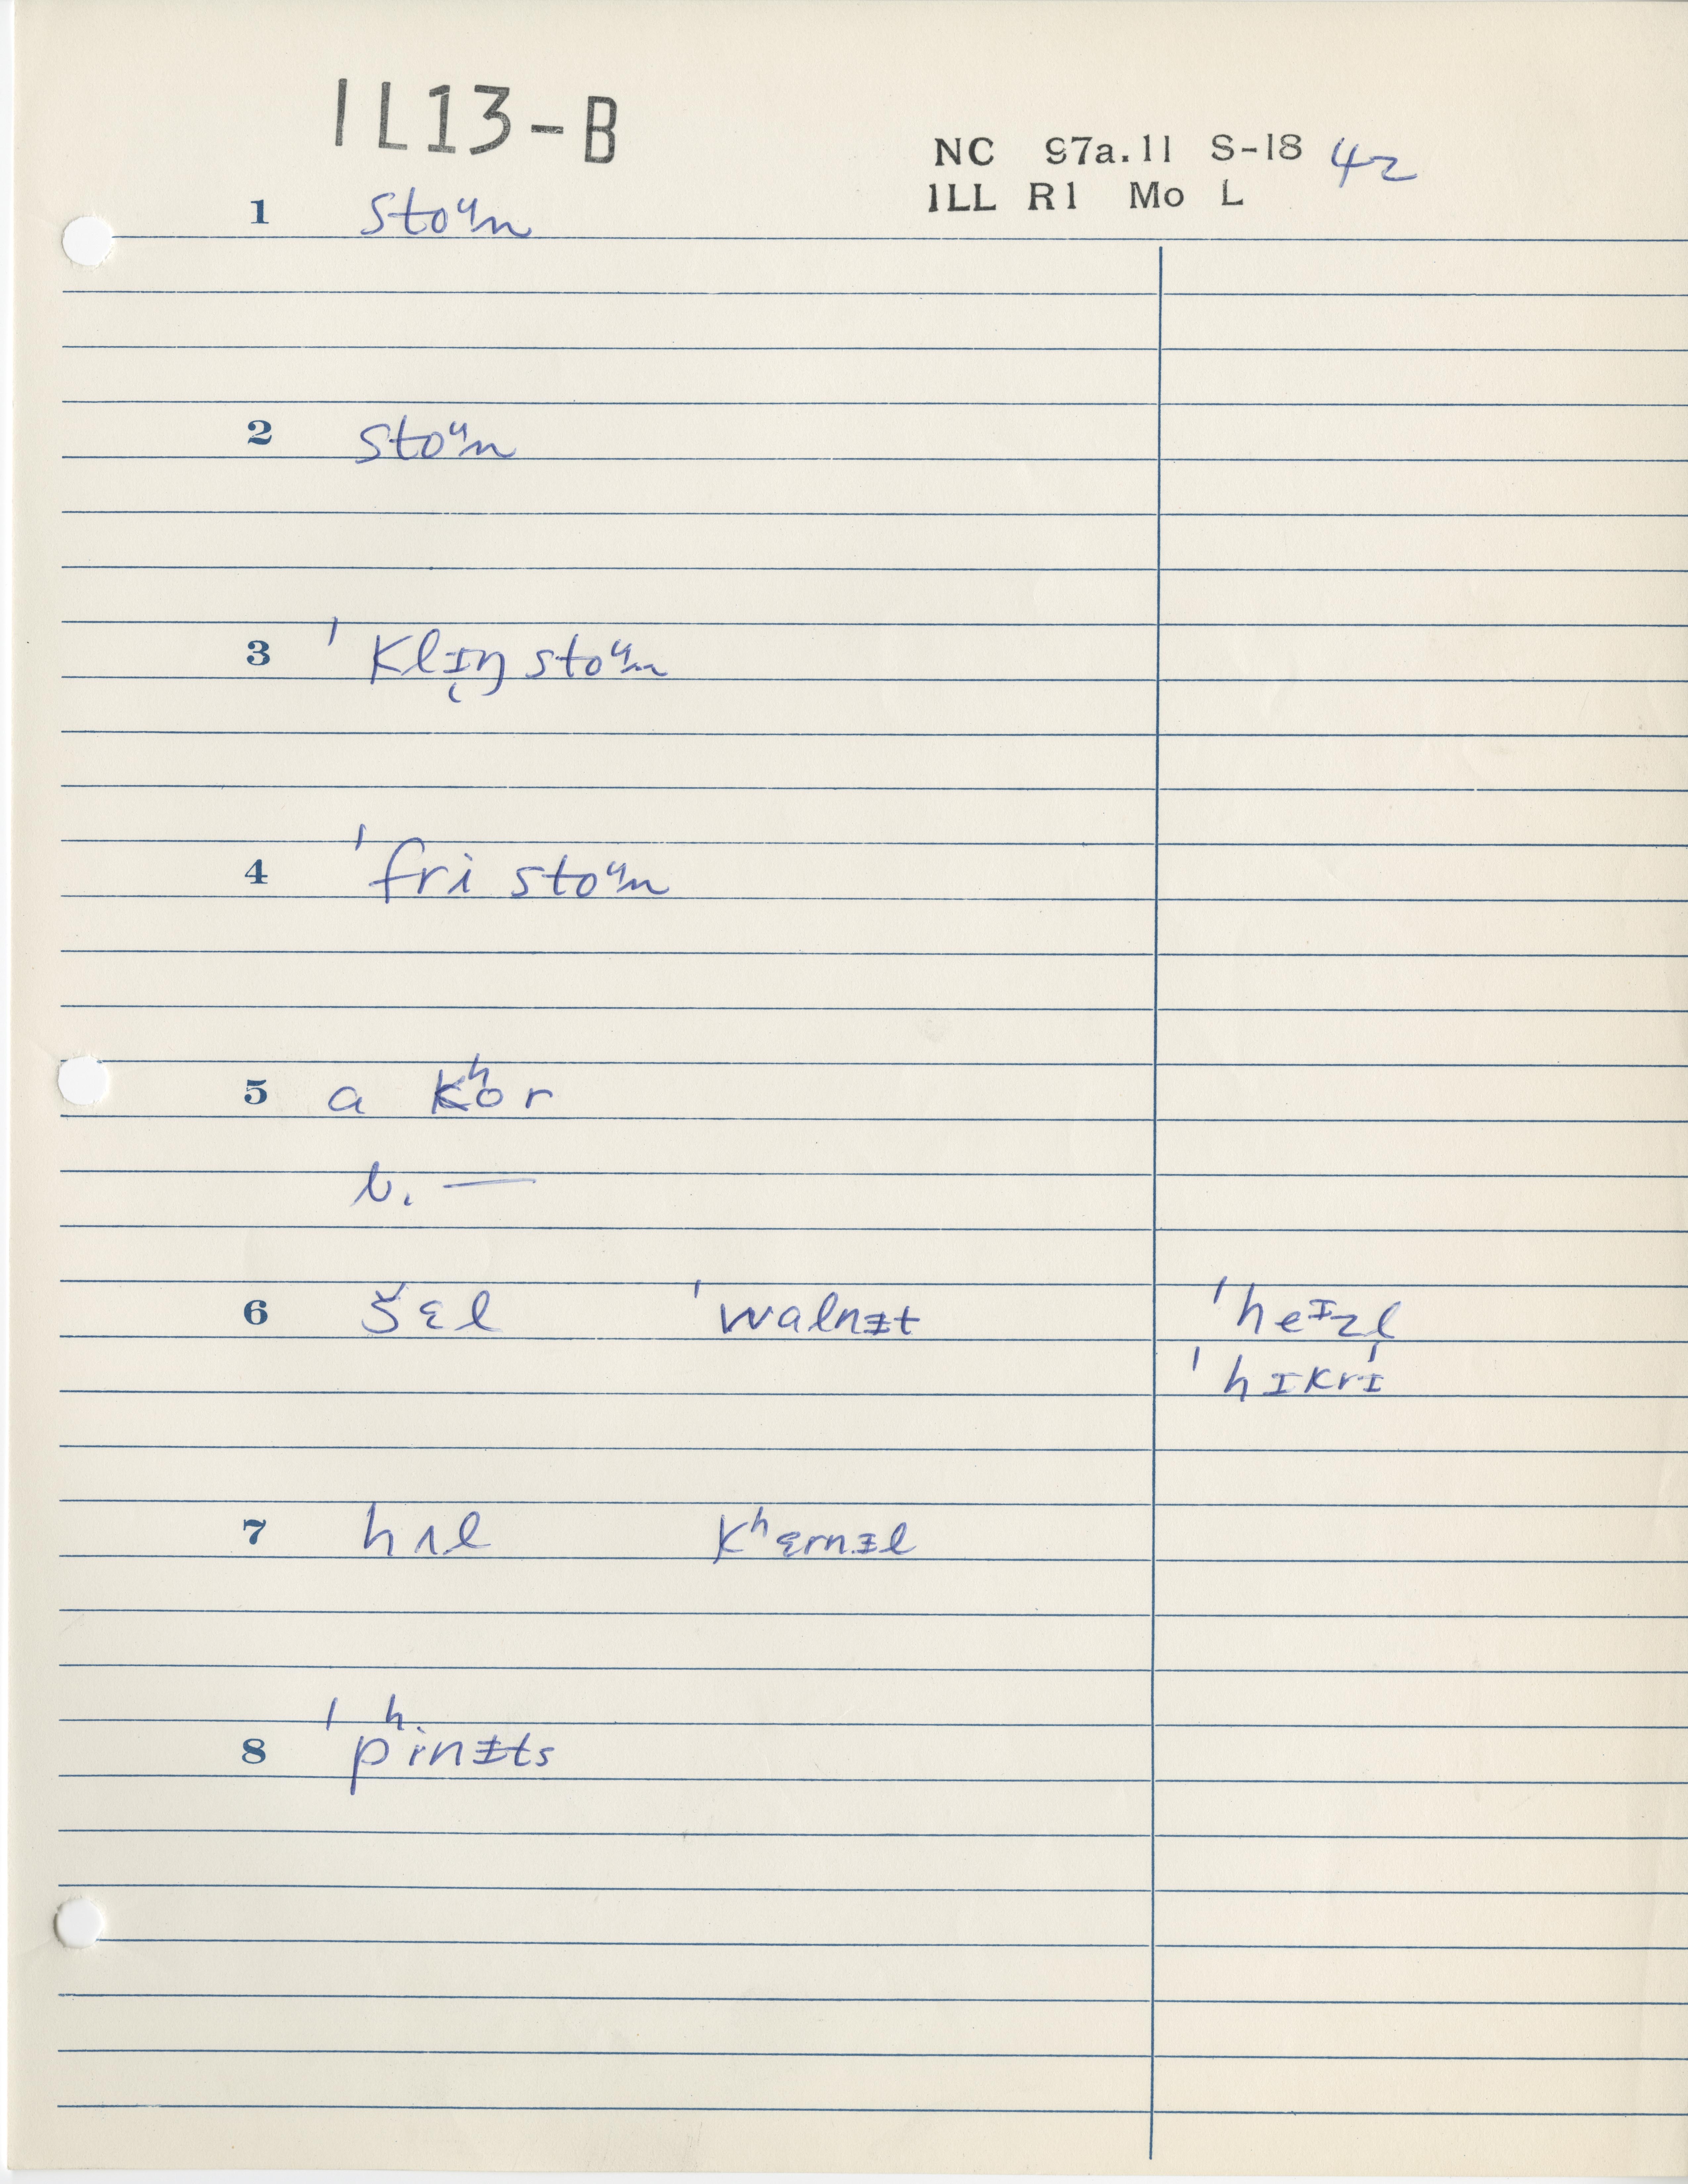 1L13-B
NC 97a.11 S-18 42
1LL R1 Mo L
1 stoᵘn
2 stoᵘn
3 ˈklɪ̨ŋstoᵘn
4 ˈfri stoᵘn
5 a kʰor
b. —
6 šɛl ˈwalnᵻt ˈheᶦzl̩
ˈhɪkrɪ
7 hʌl kʰɛrnᵻl
8 ˈpʰinᵻts